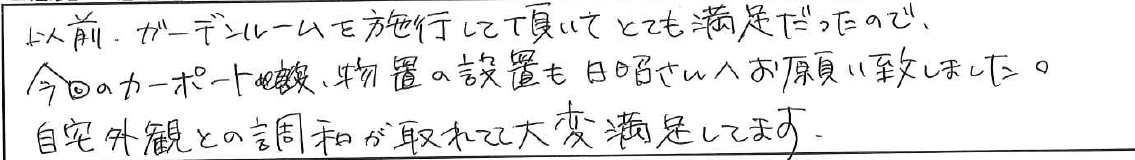 以前、ガーデンルームを施行して頂いてとても満足だったので、
今回のカーポート、物置の設置も日昭さんへお願い致しました。
自宅外観との調和が取れてて大変満足してます。